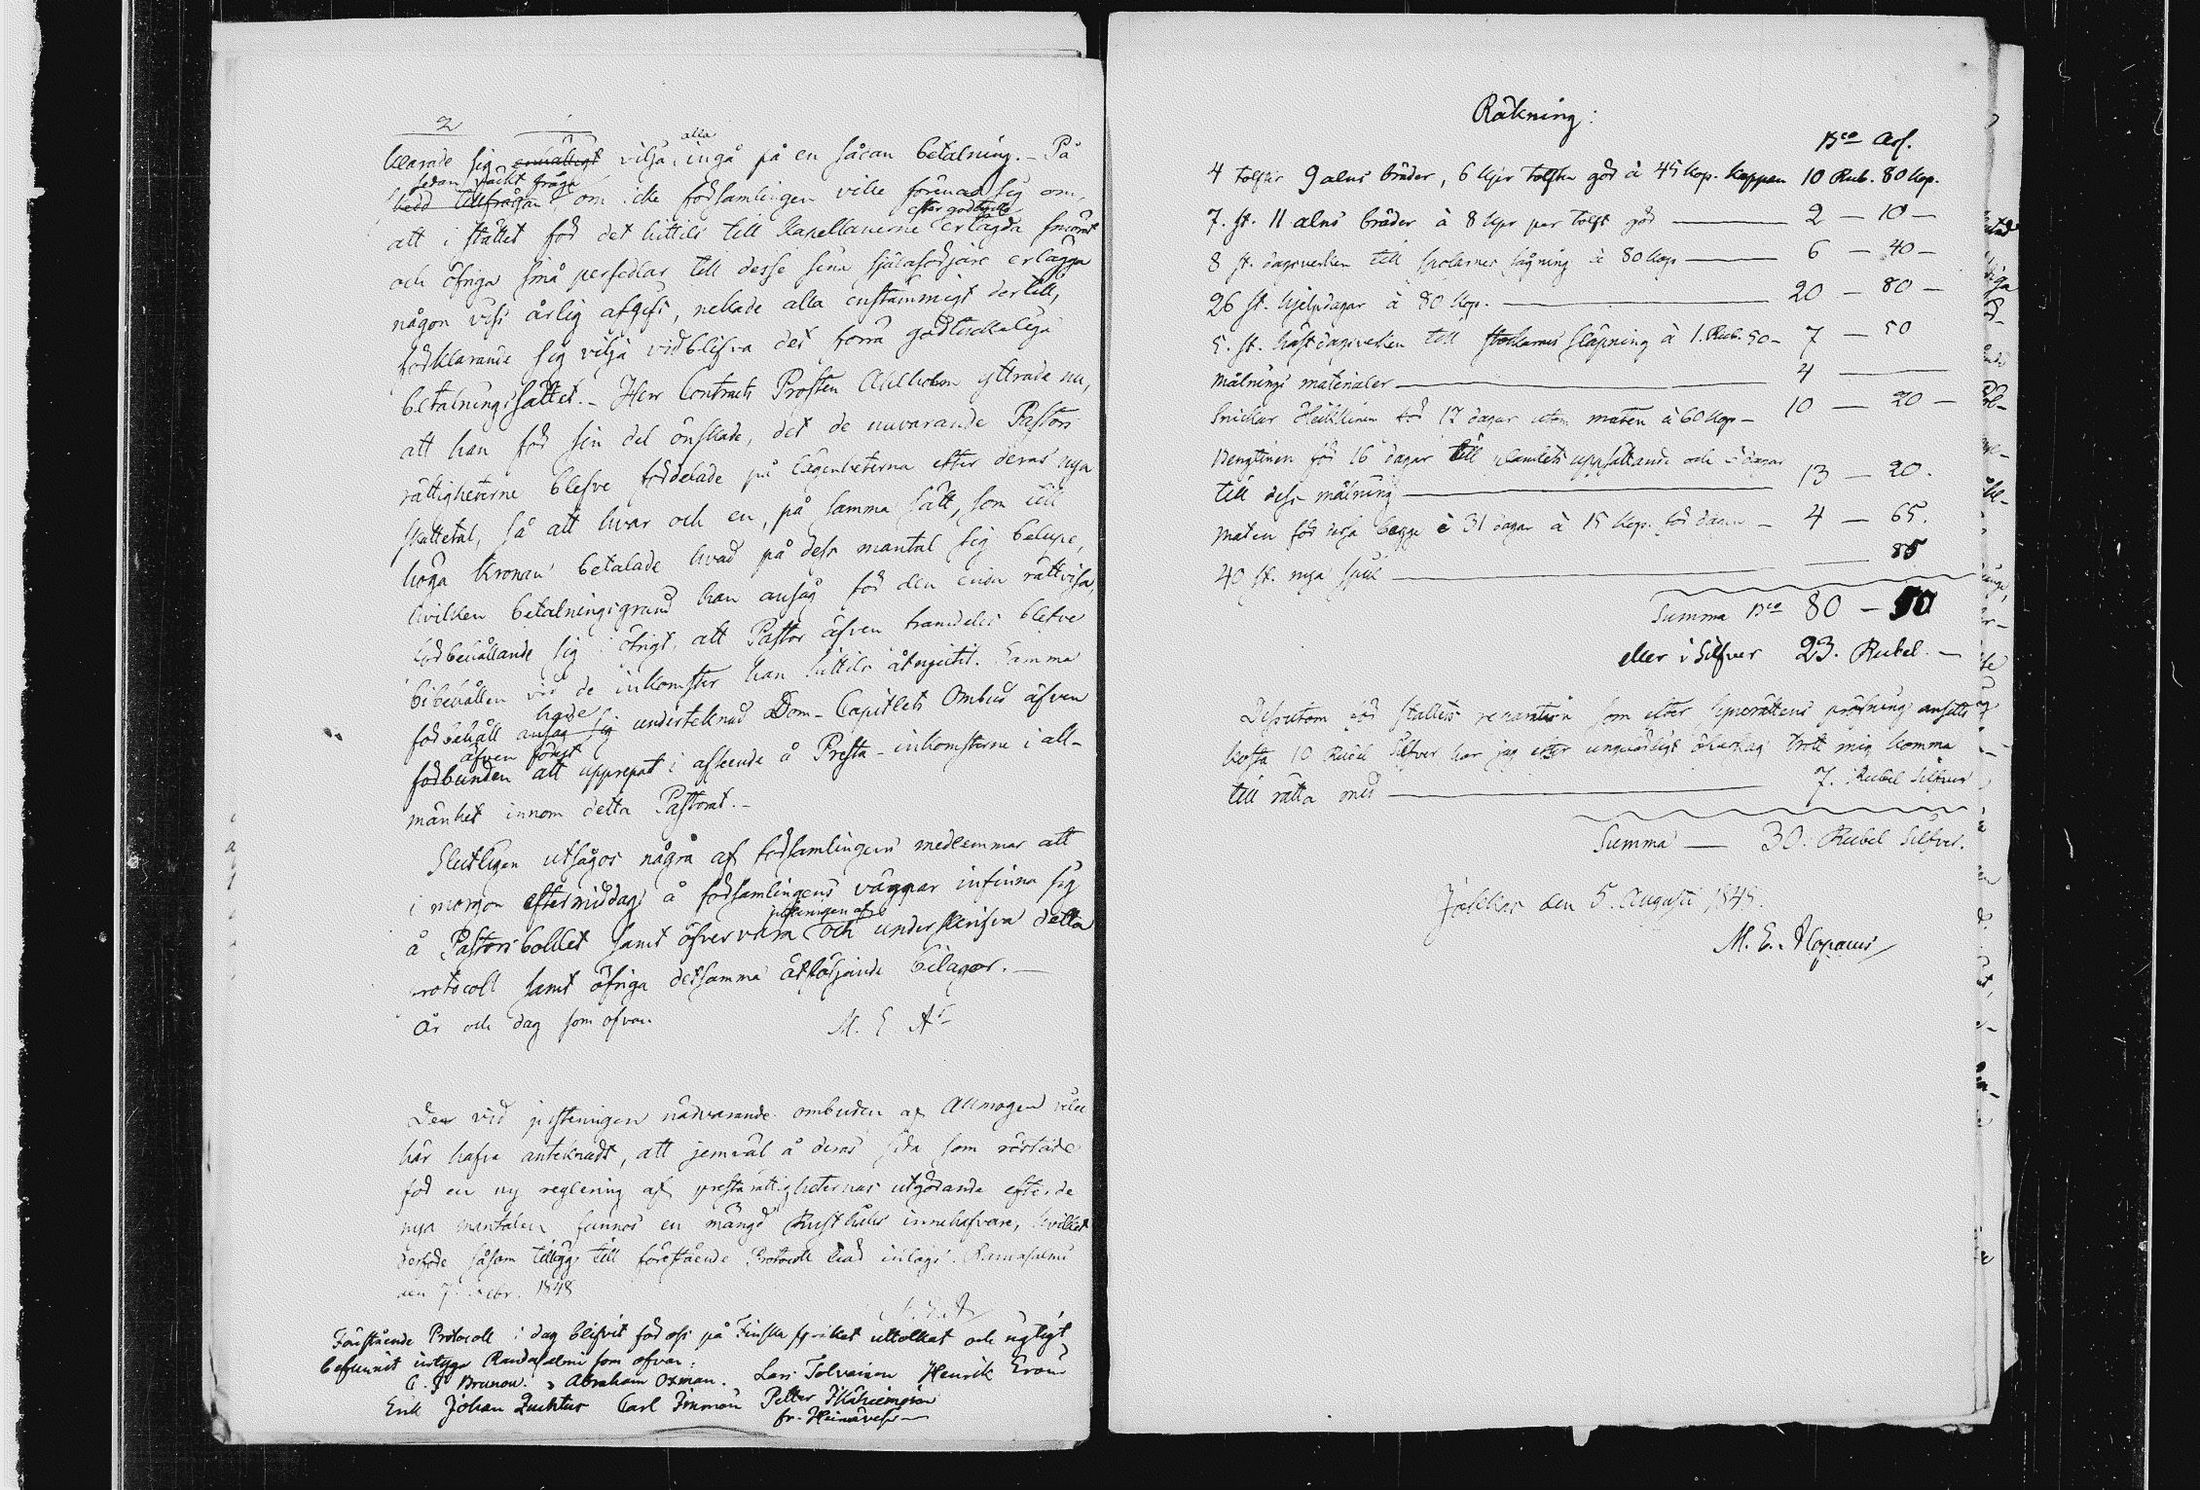 2
klarade sig enhälligt vilja alla ingå på en sådan betalning. – På
sedan väckt fråga
om icke församlingen ville förena sig om,
efter godtycke
att i stället för det hittils till Kapellanerne erlagda smöret
och öfriga små persedlar till desse sina själasörjare erlägga
någon viss årlig afgift, nekade alla enstämmigt dertill,
förklarande sig vilja vidblifva det förra godtyckeliga
betalningssättet. – Herr Contracts Prosten Ahlholm yttrade nu,
att han för sin del önskade, det de nuvarande Pastors
rättigheterne blefve fördelade på lägenheterna efter deras nya
skattetal, så att hvar och en, på samma sätt, som till
höga Kronan betalade hvad på dess mantal sig belupe,
hvilken betalningsgrund han ansåg för den enda rättvisa,
förbehållande sig i öfrigt, att Pastor äfven framdeles blefve
bibehållen vid de inkomster han hittils åtnjutit. Samma
hade
förbehåll ansåg sig undertecknad Dom-Capitlets Ombud äfven
äfven
förbunden att upprepat i afseende å Presta-inkomsterne i all-
mänhet innom detta Pastorat. –
Slutligen utsågos några af församlingens medlemmar att
i morgon eftermiddag å församlingens vägnar infinna sig
justeringen af
å Pastorsbolet samt öfvervara och underskrifva detta
rotocoll samt öfriga detsamma åtföljande bilagor. –
År och dag som ofvan
M. E. A
De vid justeringen närvarande ombuden af Allmogen ville
här hafva antecknadt, att jemväl å deras sida som röstade
för en ny reglering af prestarättigheternas utgörande efter de
nya mantalen funnos en mängd Rusthålls innehafvare, hvilket
derföre såsom tillägg till förestående Protocoll blef intagit. Randasalmi
den 7 Febr. 1848
Förestående Protocoll i dag blifvit för oss på Finska språket uttolkat och rigtigt
befunnit intyga Randasalmi som ofvan:
C. J. Brunou. Abraham Oxman. Lars Tolvainen Henrik
Erik Johan Carl Petter
fr. Heinävesi
Räkning:
Bco Ass.
4 tolfter 9 alns bräder, 6 kpr tolften gör à 45 kop. kappen 10 Rub. 80 kop.
7. st. 11 alns bräder à 8 kpr per tolft gör — 2 — 10 —
8 st. dagsverken till stockarnes sågning à 80 kop — 6 — 40 —
26 st. hjelpdagar à 80 kop. — 20 — 80 —
5. st. hästdagsverken till stockarnes släpning à 1. Rub. 50 – 7 — 50
Målnings materialer — 4 —
Snickar Heikkinen för 17 dagar utom maten à 60 kop – 10 — 20 —
Bengtinen för 16 dagar till plankets uppsättande och dagar
till dess målning — 13 — 20.
Maten för desse begge i 31 dagar à 15 kop. för dagen – 4 — 65.
40 st. nya spik — 85
Summa Bco 80 — 50
eller i Silfver 23. Rubel. —
Dessutom för stallets reparation som efter Synerättens pröfning ansetts
kosta 10 Rubel Silfver har jag efter ungefärligt öfverslag trott mig komma
till rätta med — 7. Rubel Silfver
Summa — 30. Rubel Silfver.
Jokkas den 5. Augusti 1845.
M. E. Alopaeus